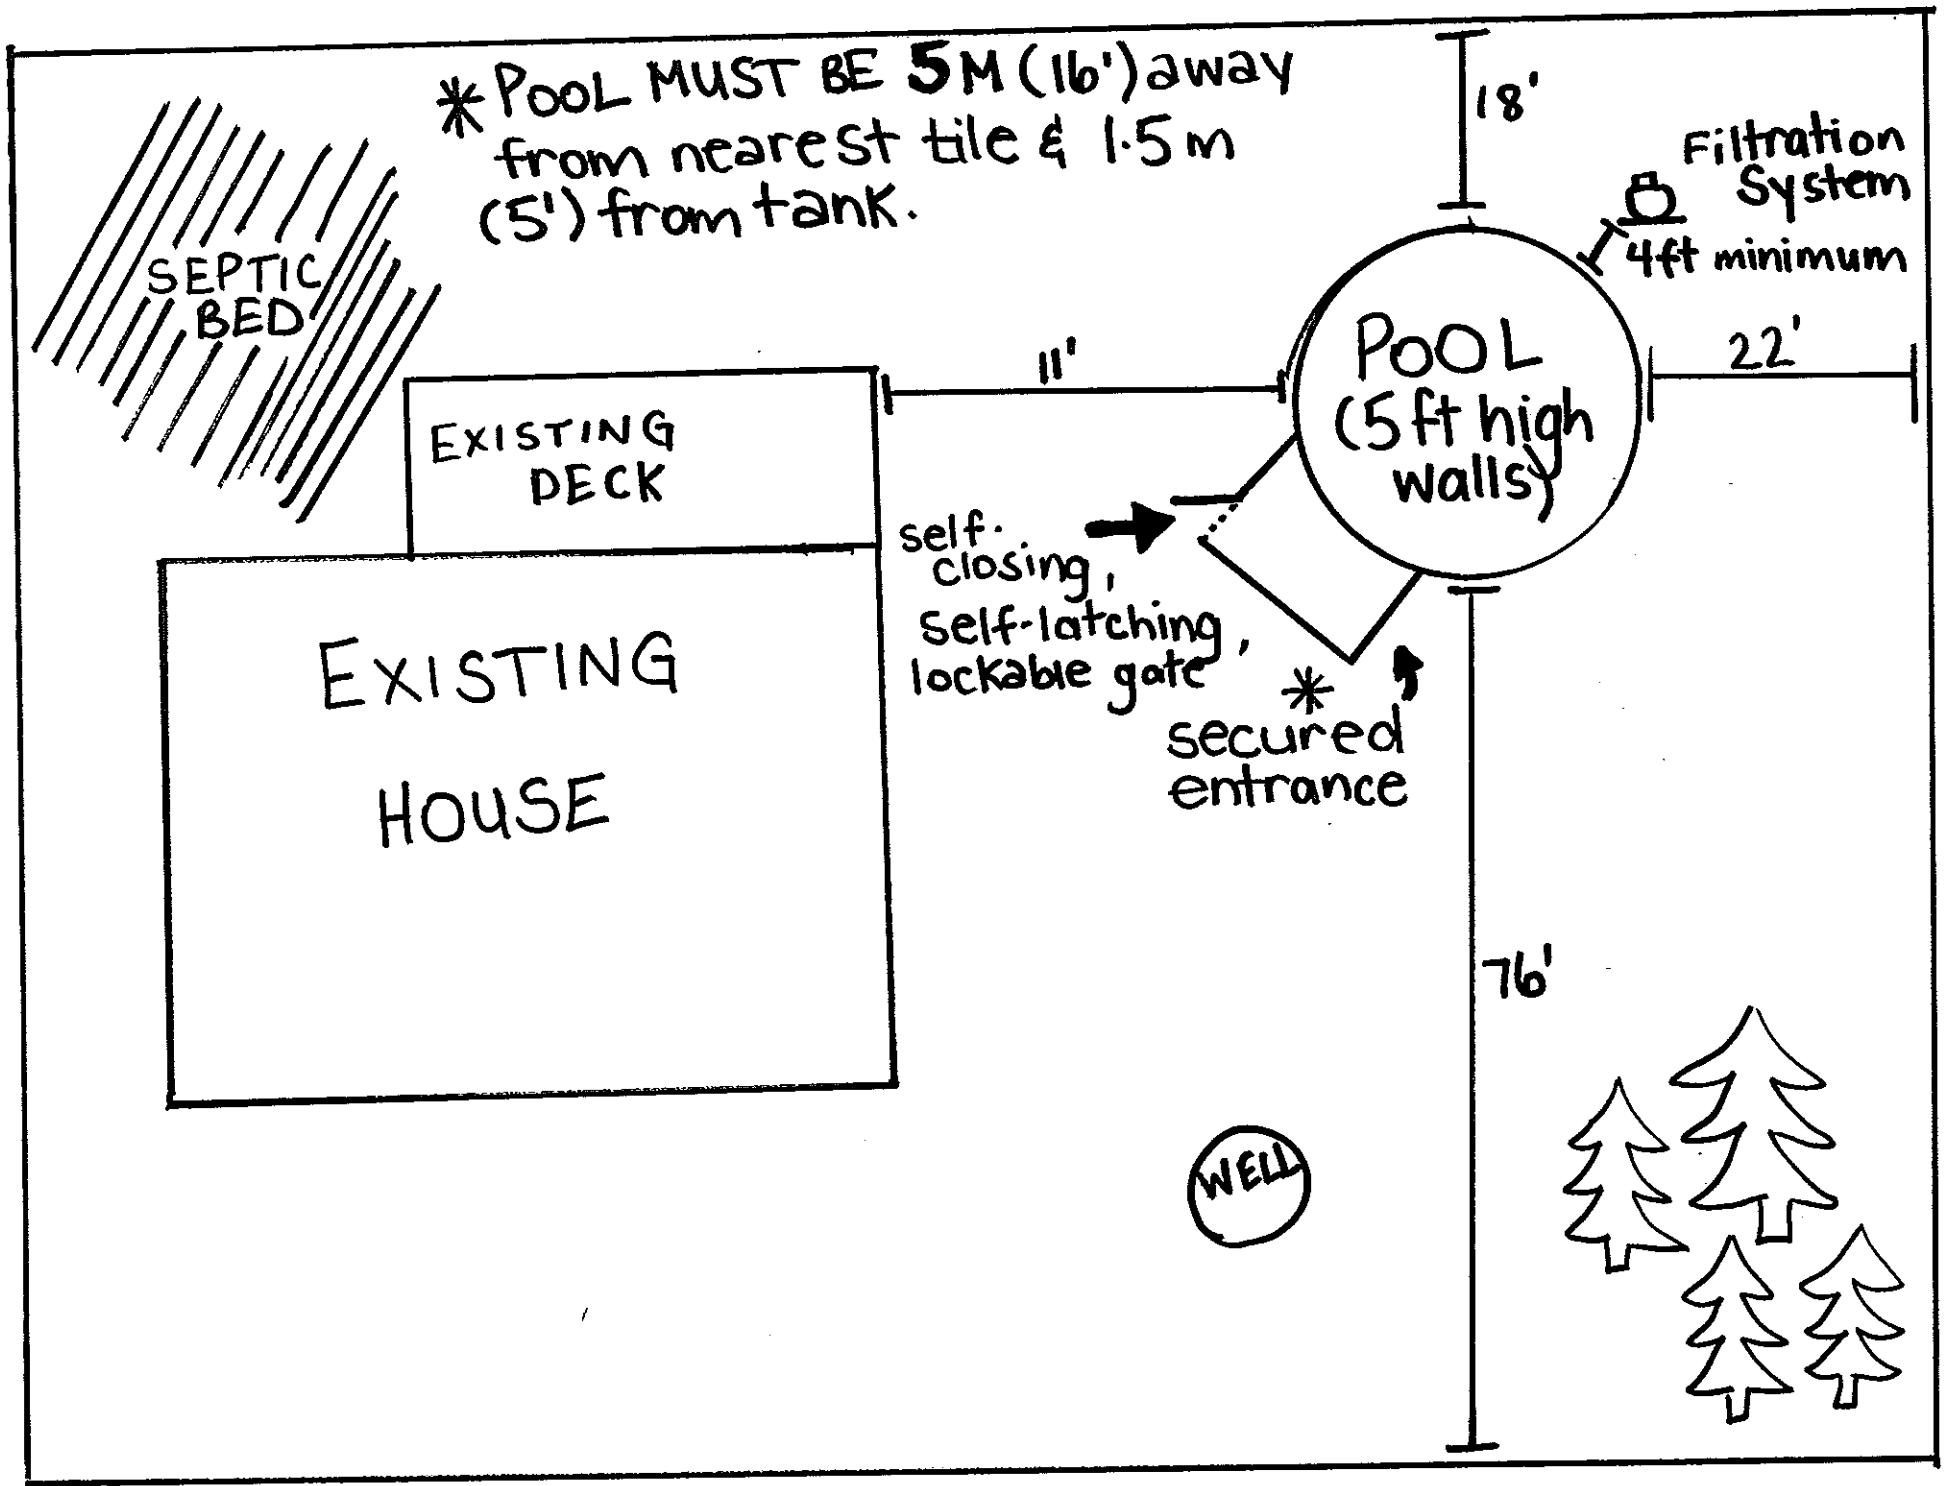 * POOL MUST BE 5M (16') away
from nearest tile & 1.5m
(5') from tank.
18'
Filtration
System
4ft minimum
SEPTIC
BED
11'
POOL
(5ft high
walls)
22'
EXISTING
DECK
self-
closing,
self-latching,
lockable gate
* secured
entrance
EXISTING
HOUSE
76'
WELL